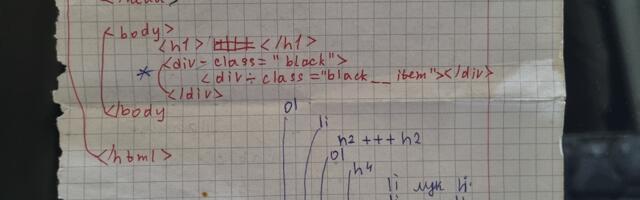 </head>
<body>
<h1> </h1>
<div - class="black">
* <div ÷ class="black__item"></div>
</div>
</body
</html>
ol
li
h2 +++ h2
ol
h4
li лук li